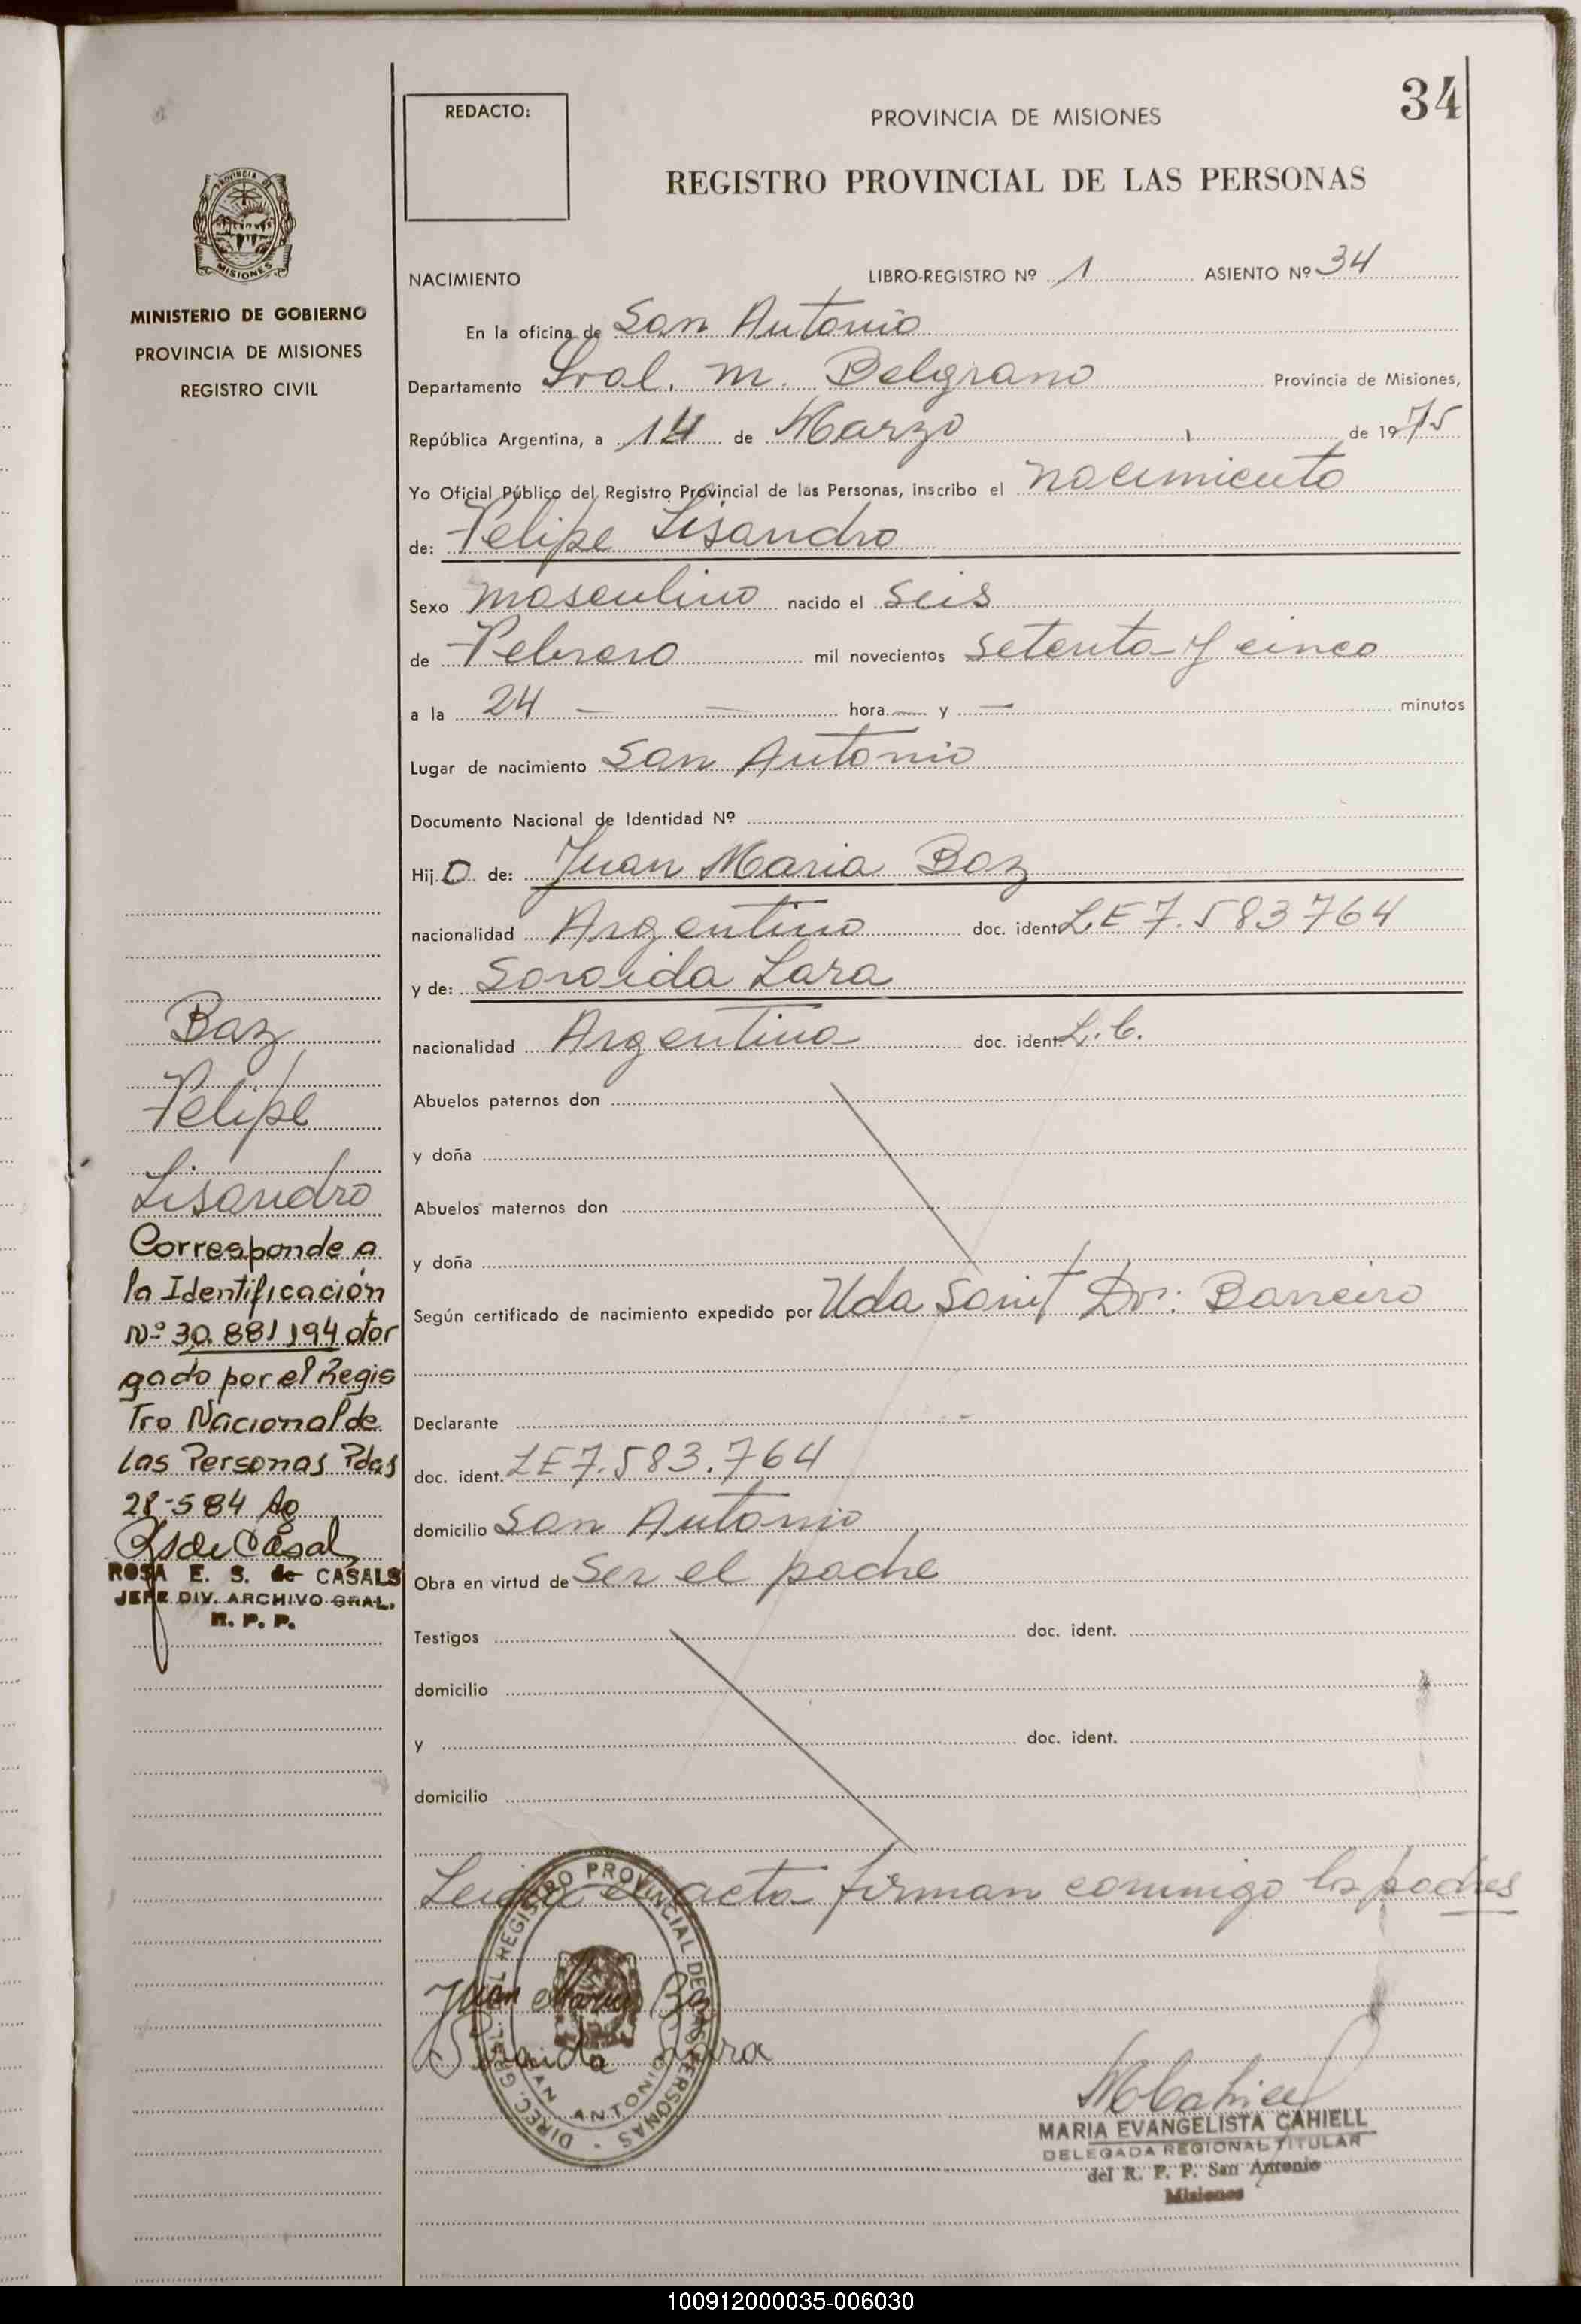 34
REDACTO:
PROVINCIA DE MISIONES
REGISTRO PROVINCIAL DE LAS PERSONAS
PROVINCIA DE
MISIONES
MINISTERIO DE GOBIERNO
PROVINCIA DE MISIONES
REGISTRO CIVIL
NACIMIENTO LIBRO-REGISTRO Nº 1 ASIENTO Nº 34
En la oficina de San Antonio
Departamento Gral. M. Belgrano Provincia de Misiones,
República Argentina, a 14 de Marzo de 1975
Yo Oficial Público del Registro Provincial de las Personas, inscribo el nacimiento
de: Felipe Lisandro
Sexo masculino nacido el seis
de Febrero mil novecientos setenta y cinco
a la 24 — — hora — y — minutos
Lugar de nacimiento San Antonio
Documento Nacional de Identidad Nº
Hijo de: Juan Maria Baz
nacionalidad Argentino doc. ident. L.E 7.583764
y de: Soraida Lara
nacionalidad Argentina doc. ident. L.C.
Abuelos paternos don
y doña
Abuelos maternos don
y doña
Según certificado de nacimiento expedido por Uda Sanit Dr: Barreiro
Declarante
doc. ident. LE 7.583.764
domicilio San Antonio
Obra en virtud de Ser el padre
Testigos doc. ident.
domicilio
y doc. ident.
domicilio
Leida el acta firman conmigo los padres
Juan Maria Baz
Soraida Lara
DIREC. GRAL. REGISTRO PROVINCIAL DE LAS PERSONAS
SAN ANTONIO
MARIA EVANGELISTA CAHIELL
DELEGADA REGIONAL TITULAR
del R. P. P. San Antonio
Misiones
Baz
Felipe
Lisandro
Corresponde a
la Identificación
Nº 30.881.194 otor
gado por el Regis
tro Nacional de
las Personas Pdas
28-5 84
RS de Casals
ROSA E. S. de CASALS
JEFE DIV. ARCHIVO GRAL.
R. P. P.
100912000035-006030